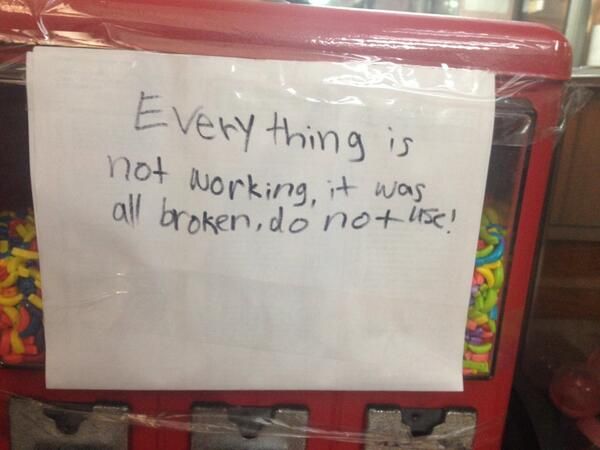 Everything is
not working, it was
all broken, do not use!